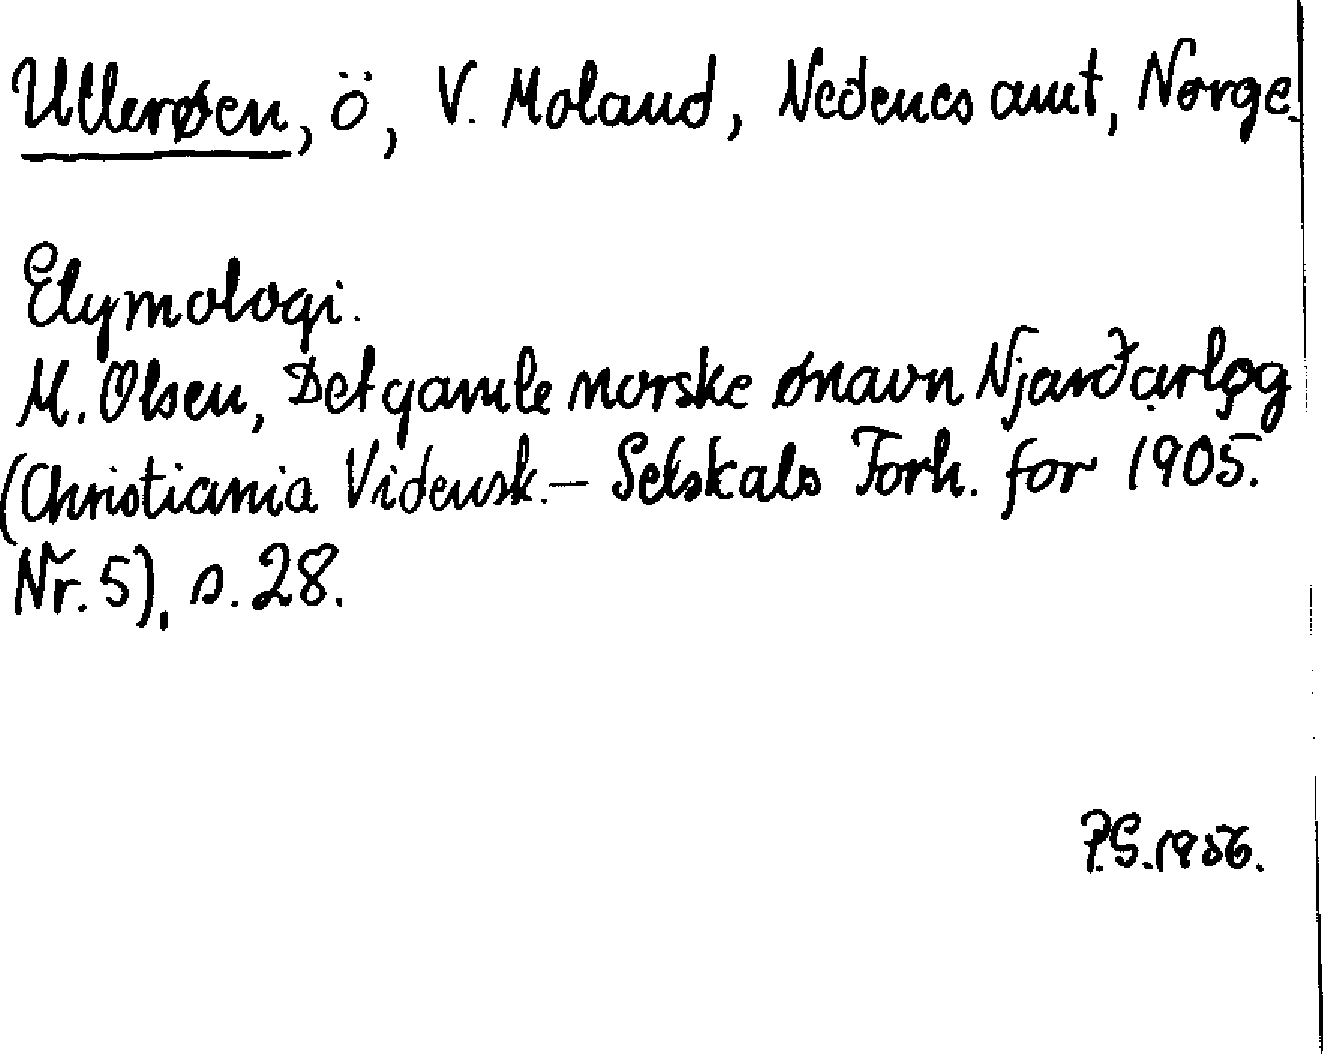 Ullerøen, ö, V. Moland, Nedenes amt, Norge.
Etymologi.
M. Olsen, Det gamle norske ønavn Njarðarlǫg
(Christiania Vidensk.- Selskabs Forh. for 1905.
Nr. 5), s. 28.
P.S. 1956.